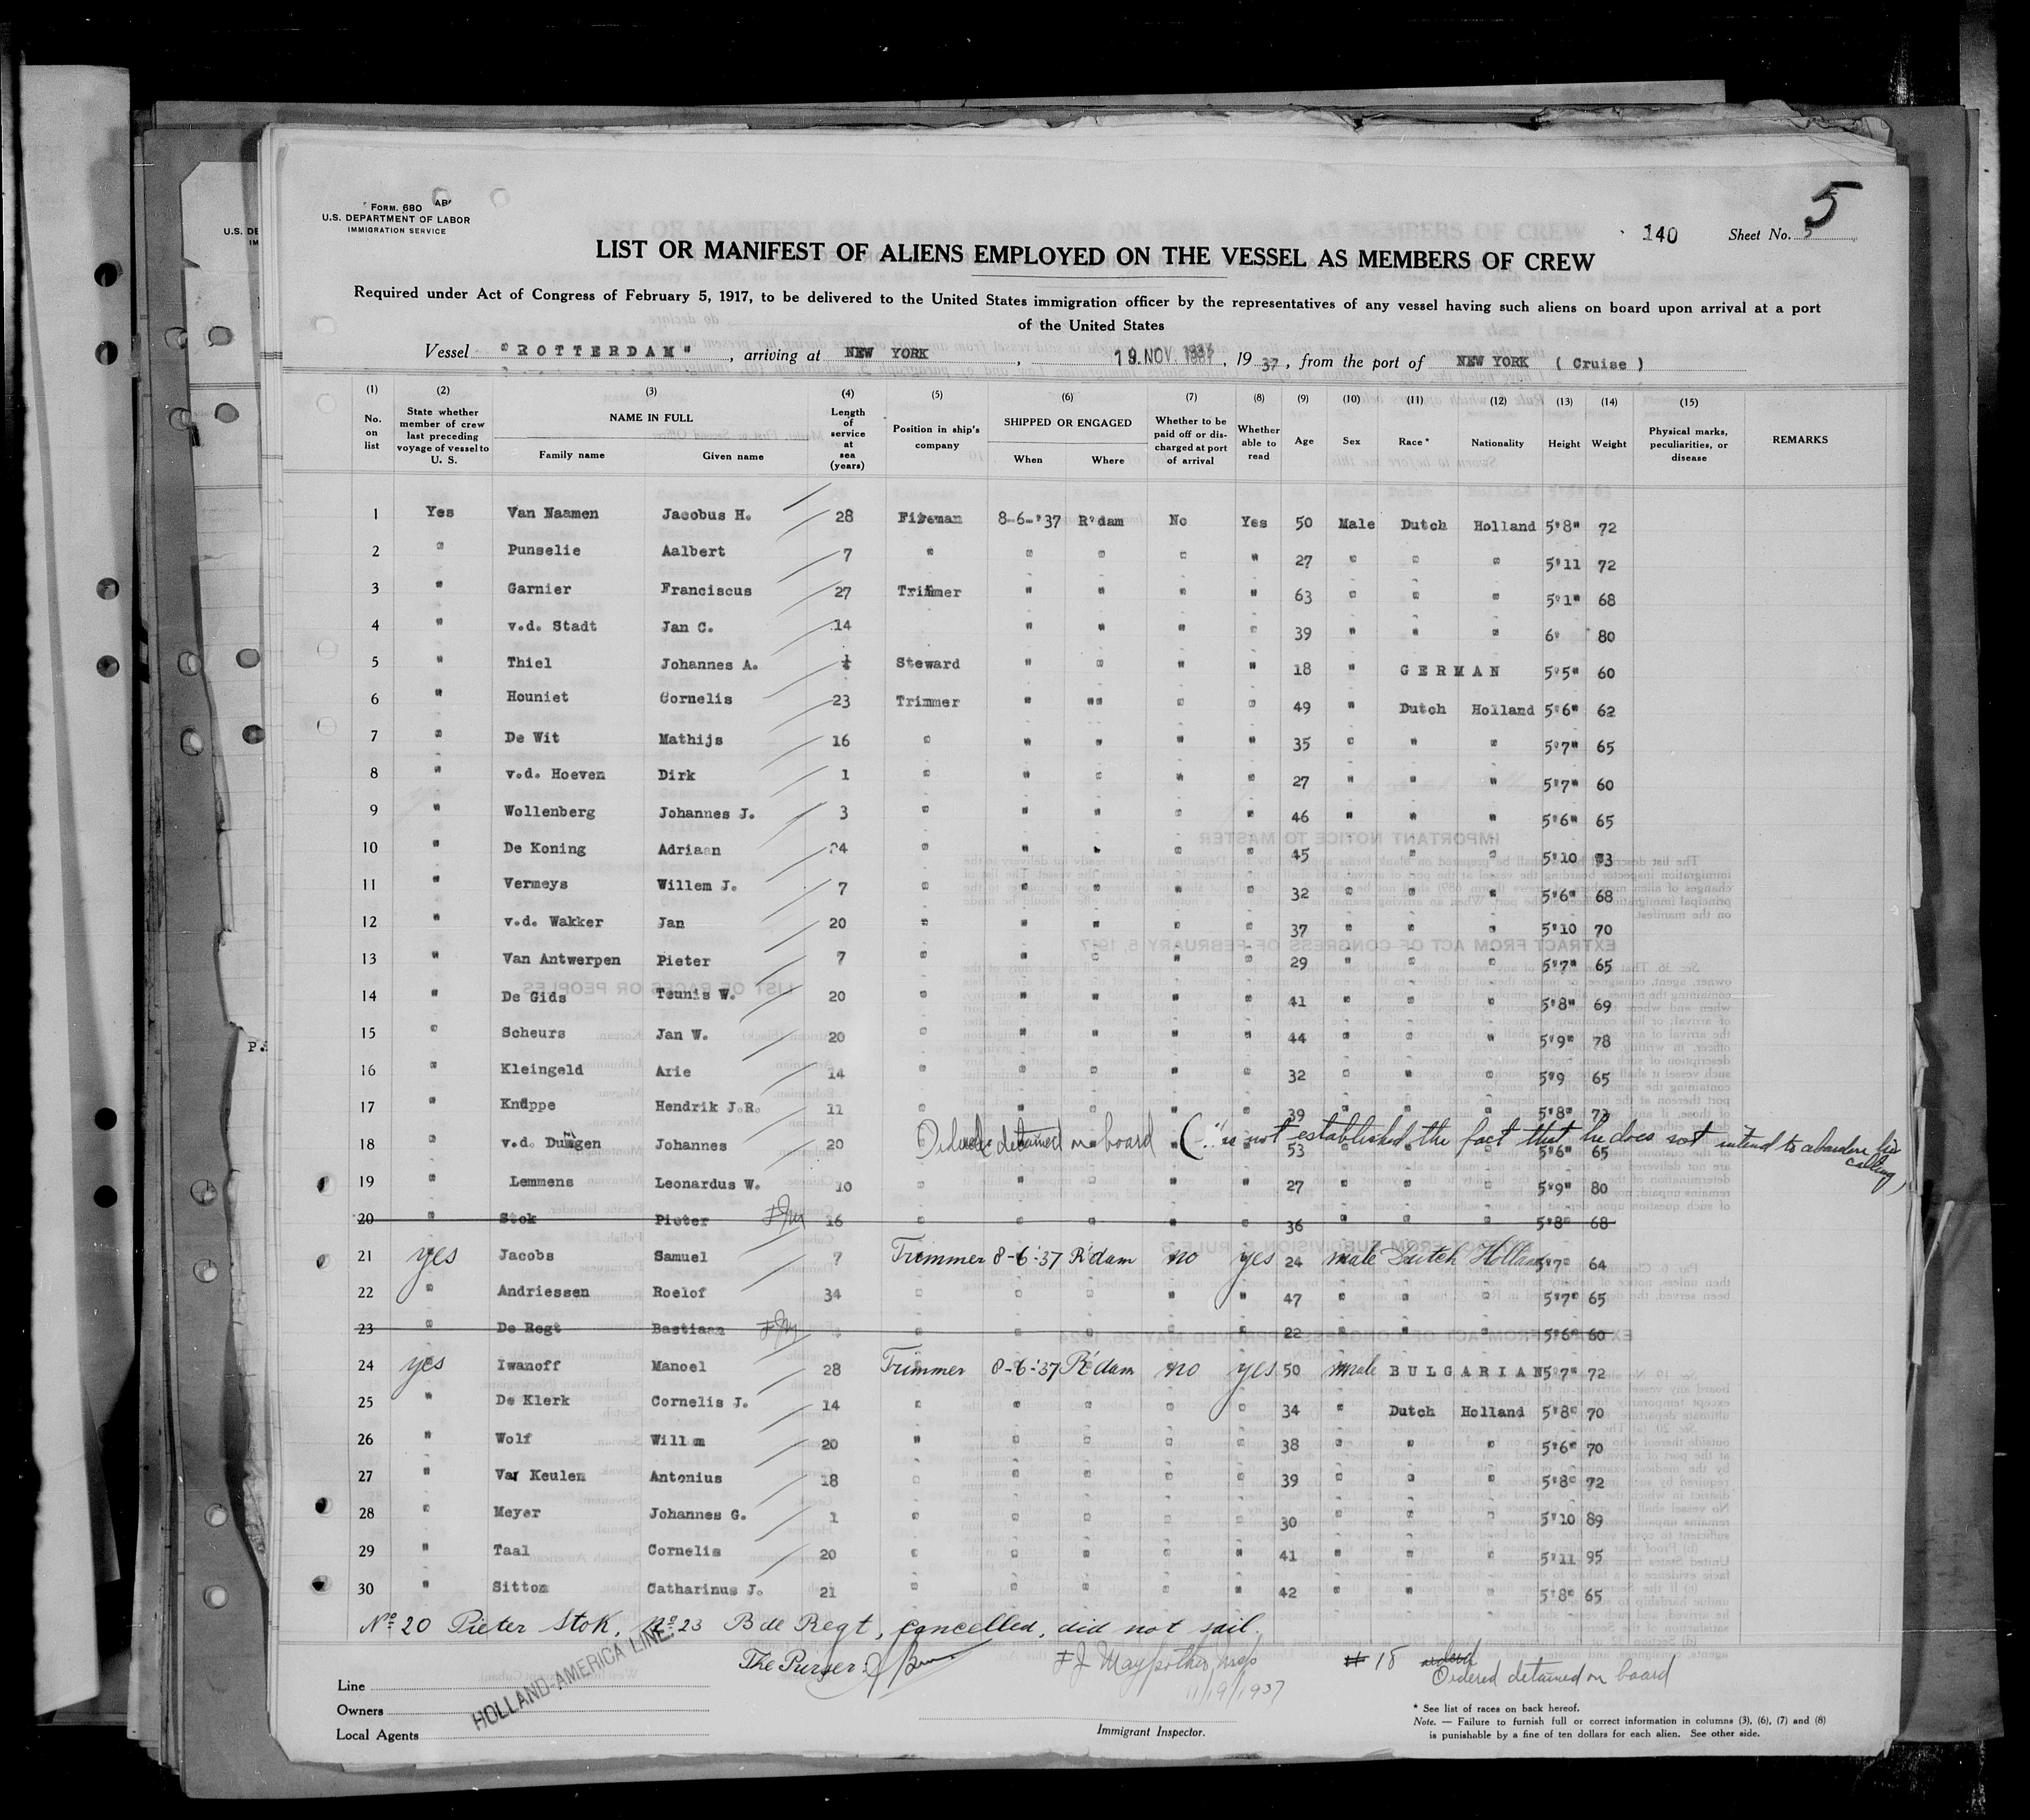 FORM. 680 AB
U.S. DEPARTMENT OF LABOR
IMMIGRATION SERVICE
5
140 Sheet No. 5
LIST OR MANIFEST OF ALIENS EMPLOYED ON THE VESSEL AS MEMBERS OF CREW
Required under Act of Congress of February 5, 1917, to be delivered to the United States immigration officer by the representatives of any vessel having such aliens on board upon arrival at a port
of the United States
Vessel "ROTTERDAM", arriving at NEW YORK, 19. NOV. 1937, 1937, from the port of NEW YORK (Cruise)
(1) (2) (3) (4) (5) (6) (7) (8) (9) (10) (11) (12) (13) (14) (15)
No. on list State whether member of crew last preceding voyage of vessel to U. S. NAME IN FULL Family name Given name Length of service at sea (years) Position in ship's company SHIPPED OR ENGAGED When Where Whether to be paid off or discharged at port of arrival Whether able to read Age Sex Race * Nationality Height Weight Physical marks, peculiarities, or disease REMARKS
1 Yes Van Naamen Jacobus H. 28 Fireman 8-6-'37 R'dam No Yes 50 Male Dutch Holland 5'8" 72
2 " Punselie Aalbert 7 " " " " " 27 " " " 5'11 72
3 " Garnier Franciscus 27 Trimmer " " " " 63 " " " 5'1" 68
4 " v.d. Stadt Jan C. 14 " " " " 39 " " " 6' 80
5 " Thiel Johannes A. Steward " " " " 18 " GERMAN 5'5" 60
6 " Houniet Cornelis 23 Trimmer " "" " " 49 " Dutch Holland 5'6" 62
7 " De Wit Mathijs 16 " " " " " 35 " " " 5'7" 65
8 " v.d. Hoeven Dirk 1 " " " " " 27 " " " 5'7" 60
9 " Wollenberg Johannes J. 3 " " " " " 46 " " " 5'6" 65
10 " De Koning Adriaan 24 " " " " " 45 " " " 5'10 73
11 " Vermeys Willem J. 7 " " " " " 32 " " " 5'6" 68
12 " v.d. Wakker Jan 20 " " " " " 37 " " " 5'10 70
13 " Van Antwerpen Pieter 7 " " " " " 29 " " " 5'7" 65
14 " De Gids Teunis W. 20 " " " " " 41 " " " 5'8" 69
15 " Scheurs Jan W. 20 " " " " " 44 " " " 5'9" 78
16 " Kleingeld Arie 14 " " " " " 32 " " " 5'9 65
17 " Knüppe Hendrik J.R. 11 " " " " " 39 " " " 5'8" 73
18 " v.d. Dungen Johannes 20 Ordered detained on board (is not established the fact that he does not intend to abandon his calling) 53 5'6" 65
19 " Lemmens Leonardus W. 10 " " " " " 27 " " " 5'9" 80
20 " Stok Pieter FJM 16 " " " " " 36 " " " 5'8" 68
21 yes Jacobs Samuel 7 Trimmer 8-6-'37 R'dam no yes 24 male Dutch Holland 5'7" 64
22 " Andriessen Roelof 34 " " " " " 47 " " " 5'7" 65
23 " De Regt Bastiaan FJM " " " " " 22 " " " 5'6" 60
24 yes Iwanoff Manoel 28 Trimmer 8-6-'37 R'dam no yes 50 male BULGARIAN 5'7" 72
25 " De Klerk Cornelis J. 14 " " " " " 34 " Dutch Holland 5'8" 70
26 " Wolf Willem 20 " " " " " 38 " " " 5'6" 70
27 " Van Keulen Antonius 18 " " " " " 39 " " " 5'8" 72
28 " Meyer Johannes G. 1 " " " " " 30 " " " 5'10 89
29 " Taal Cornelis 20 " " " " " 41 " " " 5'11 95
30 " Sittom Catharinus J. 21 " " " " " 42 " " " 5'8" 65
No 20 Pieter Stok, No 23 B de Regt, cancelled, did not sail.
The Purser:
11/19/1937
# 18 ordered
Ordered detained on board
Line
Owners
Local Agents
HOLLAND-AMERICA LINE.
Immigrant Inspector.
* See list of races on back hereof.
Note. — Failure to furnish full or correct information in columns (3), (6), (7) and (8)
is punishable by a fine of ten dollars for each alien. See other side.